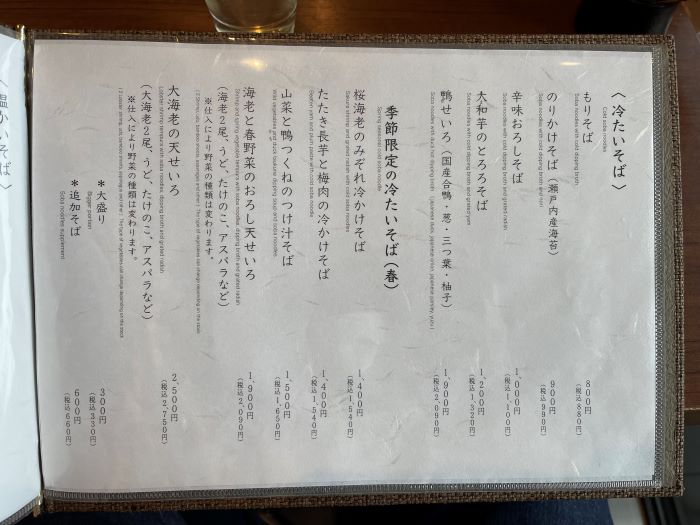 〈冷たいそば〉
Cold soba noodles
もりそば 800円
（税込880円）
Soba noodles with cold dipping broth
のりかけそば（瀬戸内産海苔） 900円
（税込990円）
Soba noodles with cold dipping broth and nori
辛味おろしそば 1,000円
（税込1,100円）
Soba noodles with cold dipping broth and grated radish
大和芋のとろろそば 1,200円
（税込1,320円）
Soba noodles with cold dipping broth and grated yam
鴨せいろ（国産合鴨・葱・三つ葉・柚子） 1,900円
（税込2,090円）
季節限定の冷たいそば（春）
桜海老のみぞれ冷かけそば 1,400円
（税込1,540円）
Sakura shrimp and grated radish with cold soba noodles
たたき長芋と梅肉の冷かけそば 1,400円
（税込1,540円）
山菜と鴨つくねのつけ汁そば 1,500円
（税込1,650円）
海老と春野菜のおろし天せいろ 1,900円
（税込2,090円）
（海老2尾、うど、たけのこ、アスパラなど）
※仕入により野菜の種類は変わります。
大海老の天せいろ 2,500円
（税込2,750円）
（大海老2尾、うど、たけのこ、アスパラなど）
※仕入により野菜の種類は変わります。
＊大盛り 300円
（税込330円）
Bigger portion
＊追加そば 600円
（税込660円）
Soba noodles supplement
〈温かいそば〉